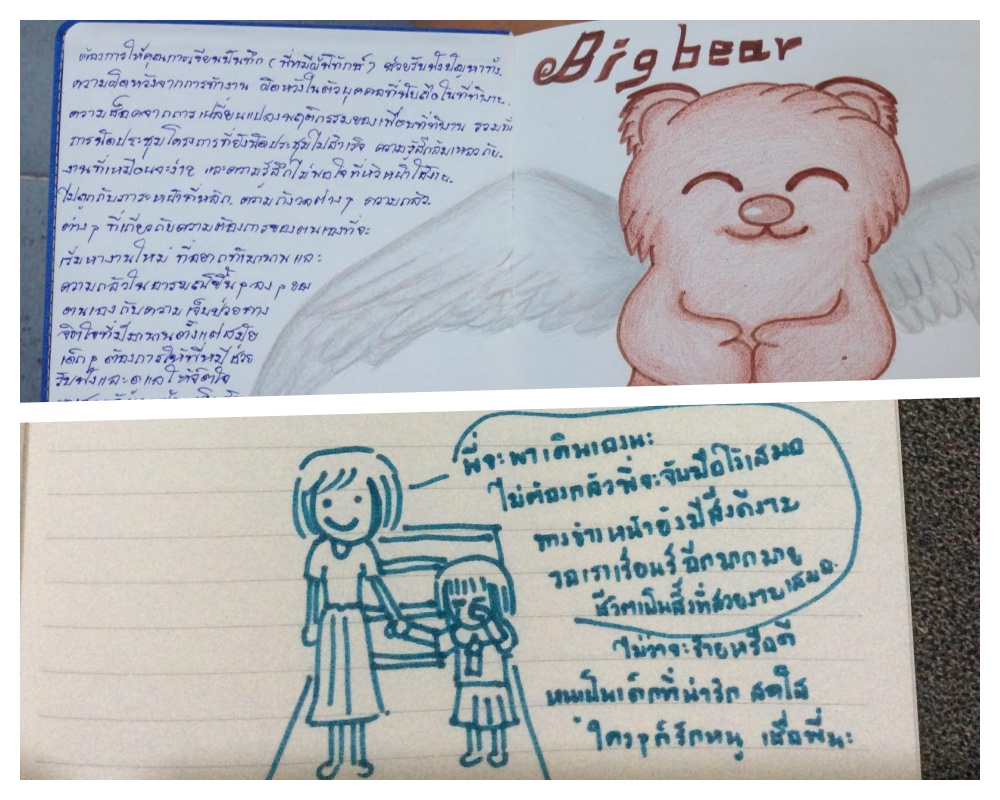 Big bear
ต้องการให้คุณการเขียนบันทึก (พี่หมีผู้พิทักษ์) ช่วยรับฟังปัญหาทั้ง
ความผิดหวังจากการทำงาน ผิดหวังในตัวบุคคลที่นับถือในที่ทำงาน
ความช็อคจากการเปลี่ยนแปลงพฤติกรรมของเพื่อนที่ทำงาน รวมทั้ง
การนัดประชุมโครงการที่ยังนัดประชุมไม่สำเร็จ ความรู้สึกล้มเหลวกับ
งานที่เหมือนจะง่าย และความรู้สึกไม่พอใจที่หัวหน้าใช้งาน
ไม่ถูกกับภาระหน้าที่หลัก ความกังวลต่างๆ ความกลัว
ต่างๆ ที่เกี่ยวกับความต้องการของตนเองที่จะ
เริ่มหางานใหม่ ที่อยากทำมานาน และ
ความกลัวในอารมณ์ขึ้นๆ ลงๆ ของ
ตนเอง กับความเจ็บป่วยทาง
จิตใจที่มีมานานตั้งแต่สมัย
เด็กๆ ต้องการให้พี่หมีช่วย
รับฟังและดูแลให้จิตใจ
พี่จะพาเดินเองนะ
ไม่ต้องกลัวพี่จะจับมือไว้เสมอ
ทางข้างหน้ายังมีสิ่งดีงาม
รอเราเรียนรู้อีกมากมาย
ชีวิตเป็นสิ่งที่สวยงามเสมอ
ไม่ว่าจะร้ายหรือดี
หนูเป็นเด็กที่น่ารัก สดใส
ใครๆก็รักหนู เชื่อพี่นะ